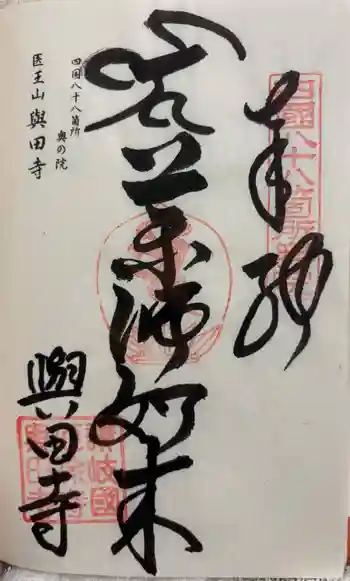 奉拝
四國八十八箇所
薬師如来
與田寺
讃岐國
與田寺
四国八十八箇所
奥の院
医王山 與田寺